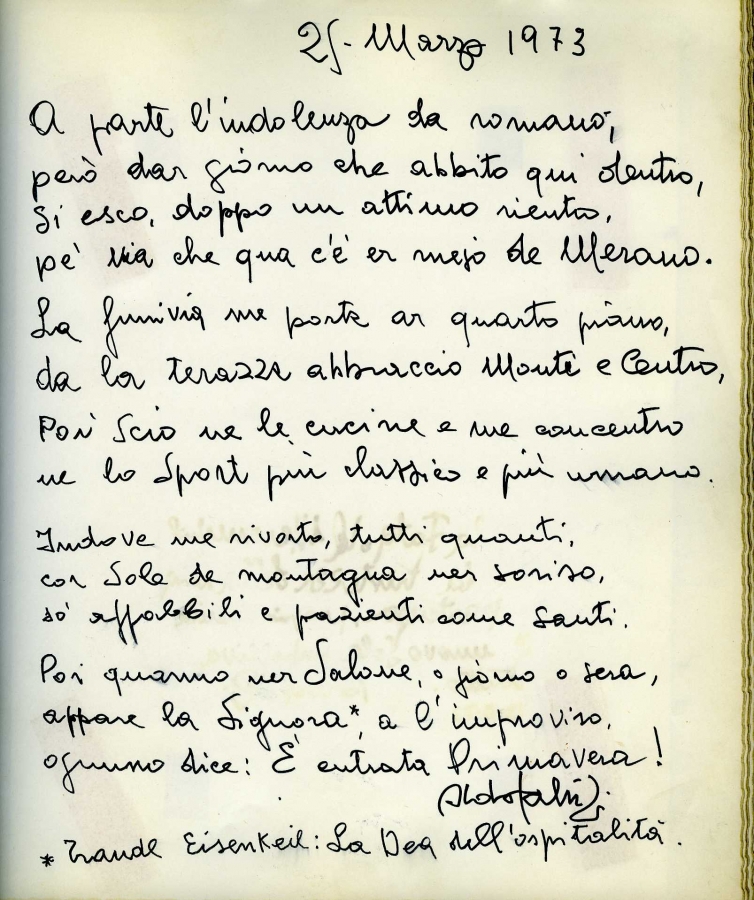 25. Marzo 1973
A parte l'indolenza da romano,
però dar giorno che abbito qui dentro,
si esco, doppo un attimo rientro,
pe' via che qua c'è er mejo de Merano.
La funivia me porta ar quarto piano,
da la terazza abbraccio Monti e Centro,
Poi Scio ne le cucine e me concentro
ne lo Sport più classico e più umano.
Indove me rivorto, tutti quanti,
cor Sole de montagna ner soriso,
so' affabbili e pazienti come Santi.
Poi quanno ner Salone, o giorno o sera,
appare la Signora*, a l'improviso,
ognuno dice: È entrata Primavera!
(Aldo Fabrizi).
* Traudl Eisenkeil: La Dea dell'ospitalità.